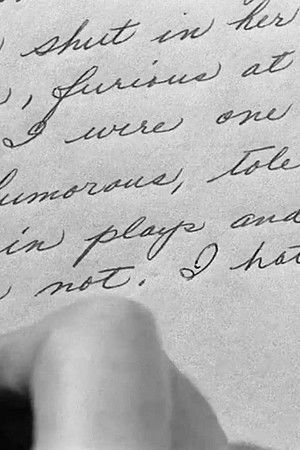 shut in her
, furious at
I were one
umorous, tole
in plays and
not. I hat